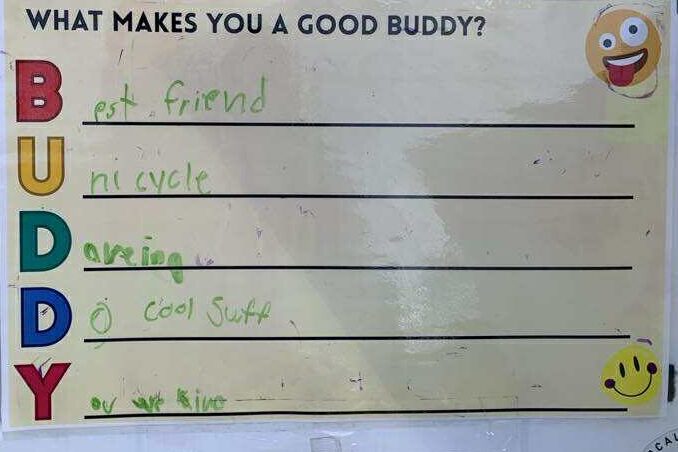 WHAT MAKES YOU A GOOD BUDDY?
Best friend
Uni cycle
Dareing
Do cool Suff
You are kind